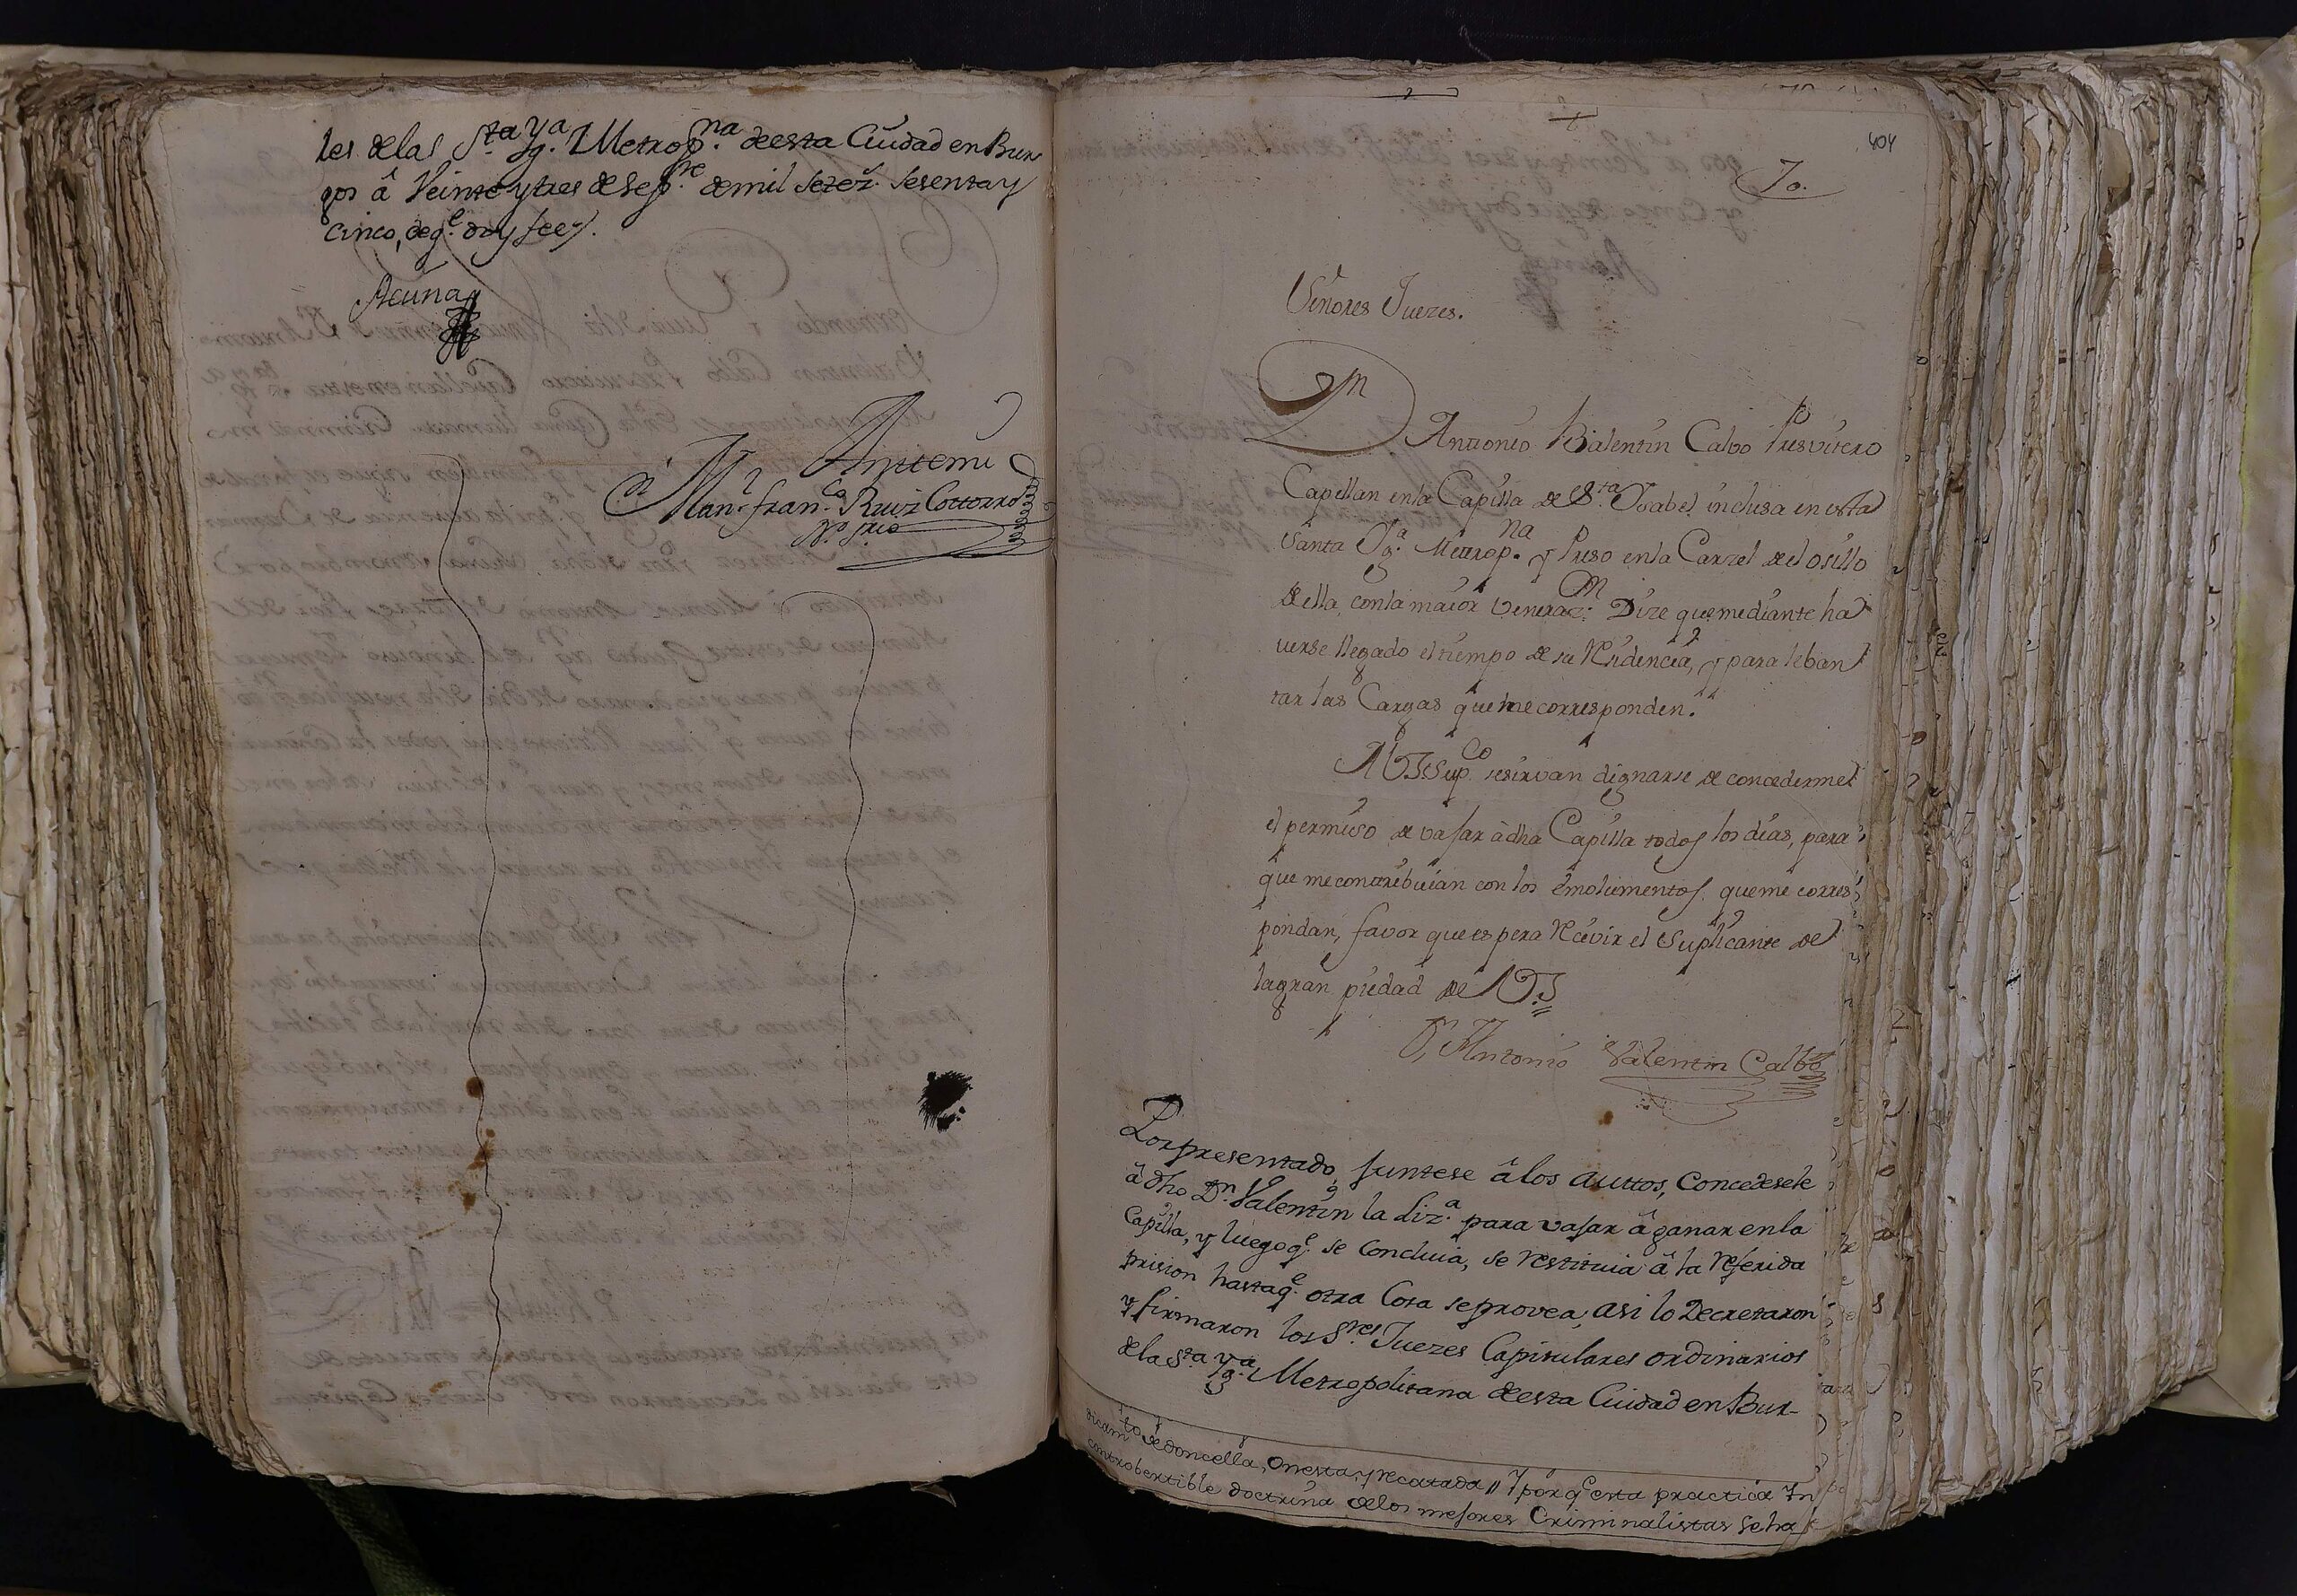 les de la S.ta Yg.a Metrop.na de esta Ciudad en Bur
gos â Veinte y tres de Sep.re de mil setez.s sesenta y
cinco, de q.e doy fee,
Acuña
Antemi
Man.l fran.co Ruiz Cottorro
N.o
404
70.
Señores Juezes.
Dn
Antonio Balentin Calbo Presvitero
Capellan en la Capilla de S.ta Ysabel inclusa en esta
Santa Yg.a Metrop.na y Preso en la Carzel de el osillo
de ella, con la maior Veneraz.n Dize que mediante ha
verse llegado el tiempo de su Residencia, y para leban
tar las Cargas que me corresponden.
A VS Sup.co se sirvan dignarse de concederme
el permiso de vajar â dha Capilla todos los dias, para
que me contribuian con los emolumentos que me corres
pondan, favor que espera Recivir el Suplicante de
la gran piedad de VS
D.n Antonio Valentin Calbo
Por presentado, juntese â los auttos, Concedesele
â dho D.n Valentin la liz.a para vajar â ganar en la
Capilla, y luego q.e se concluia, se restituia â la referida
prision hasta q.e otra Cosa se provea, asi lo Decretaron
y firmaron los S.res Juezes Capitulares ordinarios
de la S.ta Yg.a Metropolitana de esta Ciudad en Bur-
to de doncella, onesta, y recatada // Y por q.e esta practica In
controbertible doctrina de los mejores Criminalistas se ha